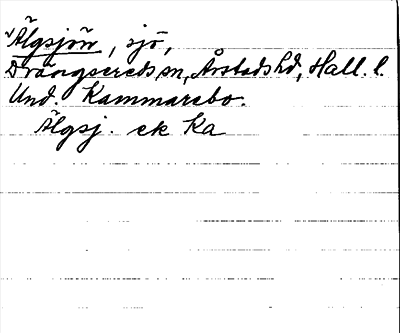 Älgsjön, sjö,
Drängsereds sn, Årstads hd, Hall. l.
Und. Kammarebo.
Älgsj. ek Ka